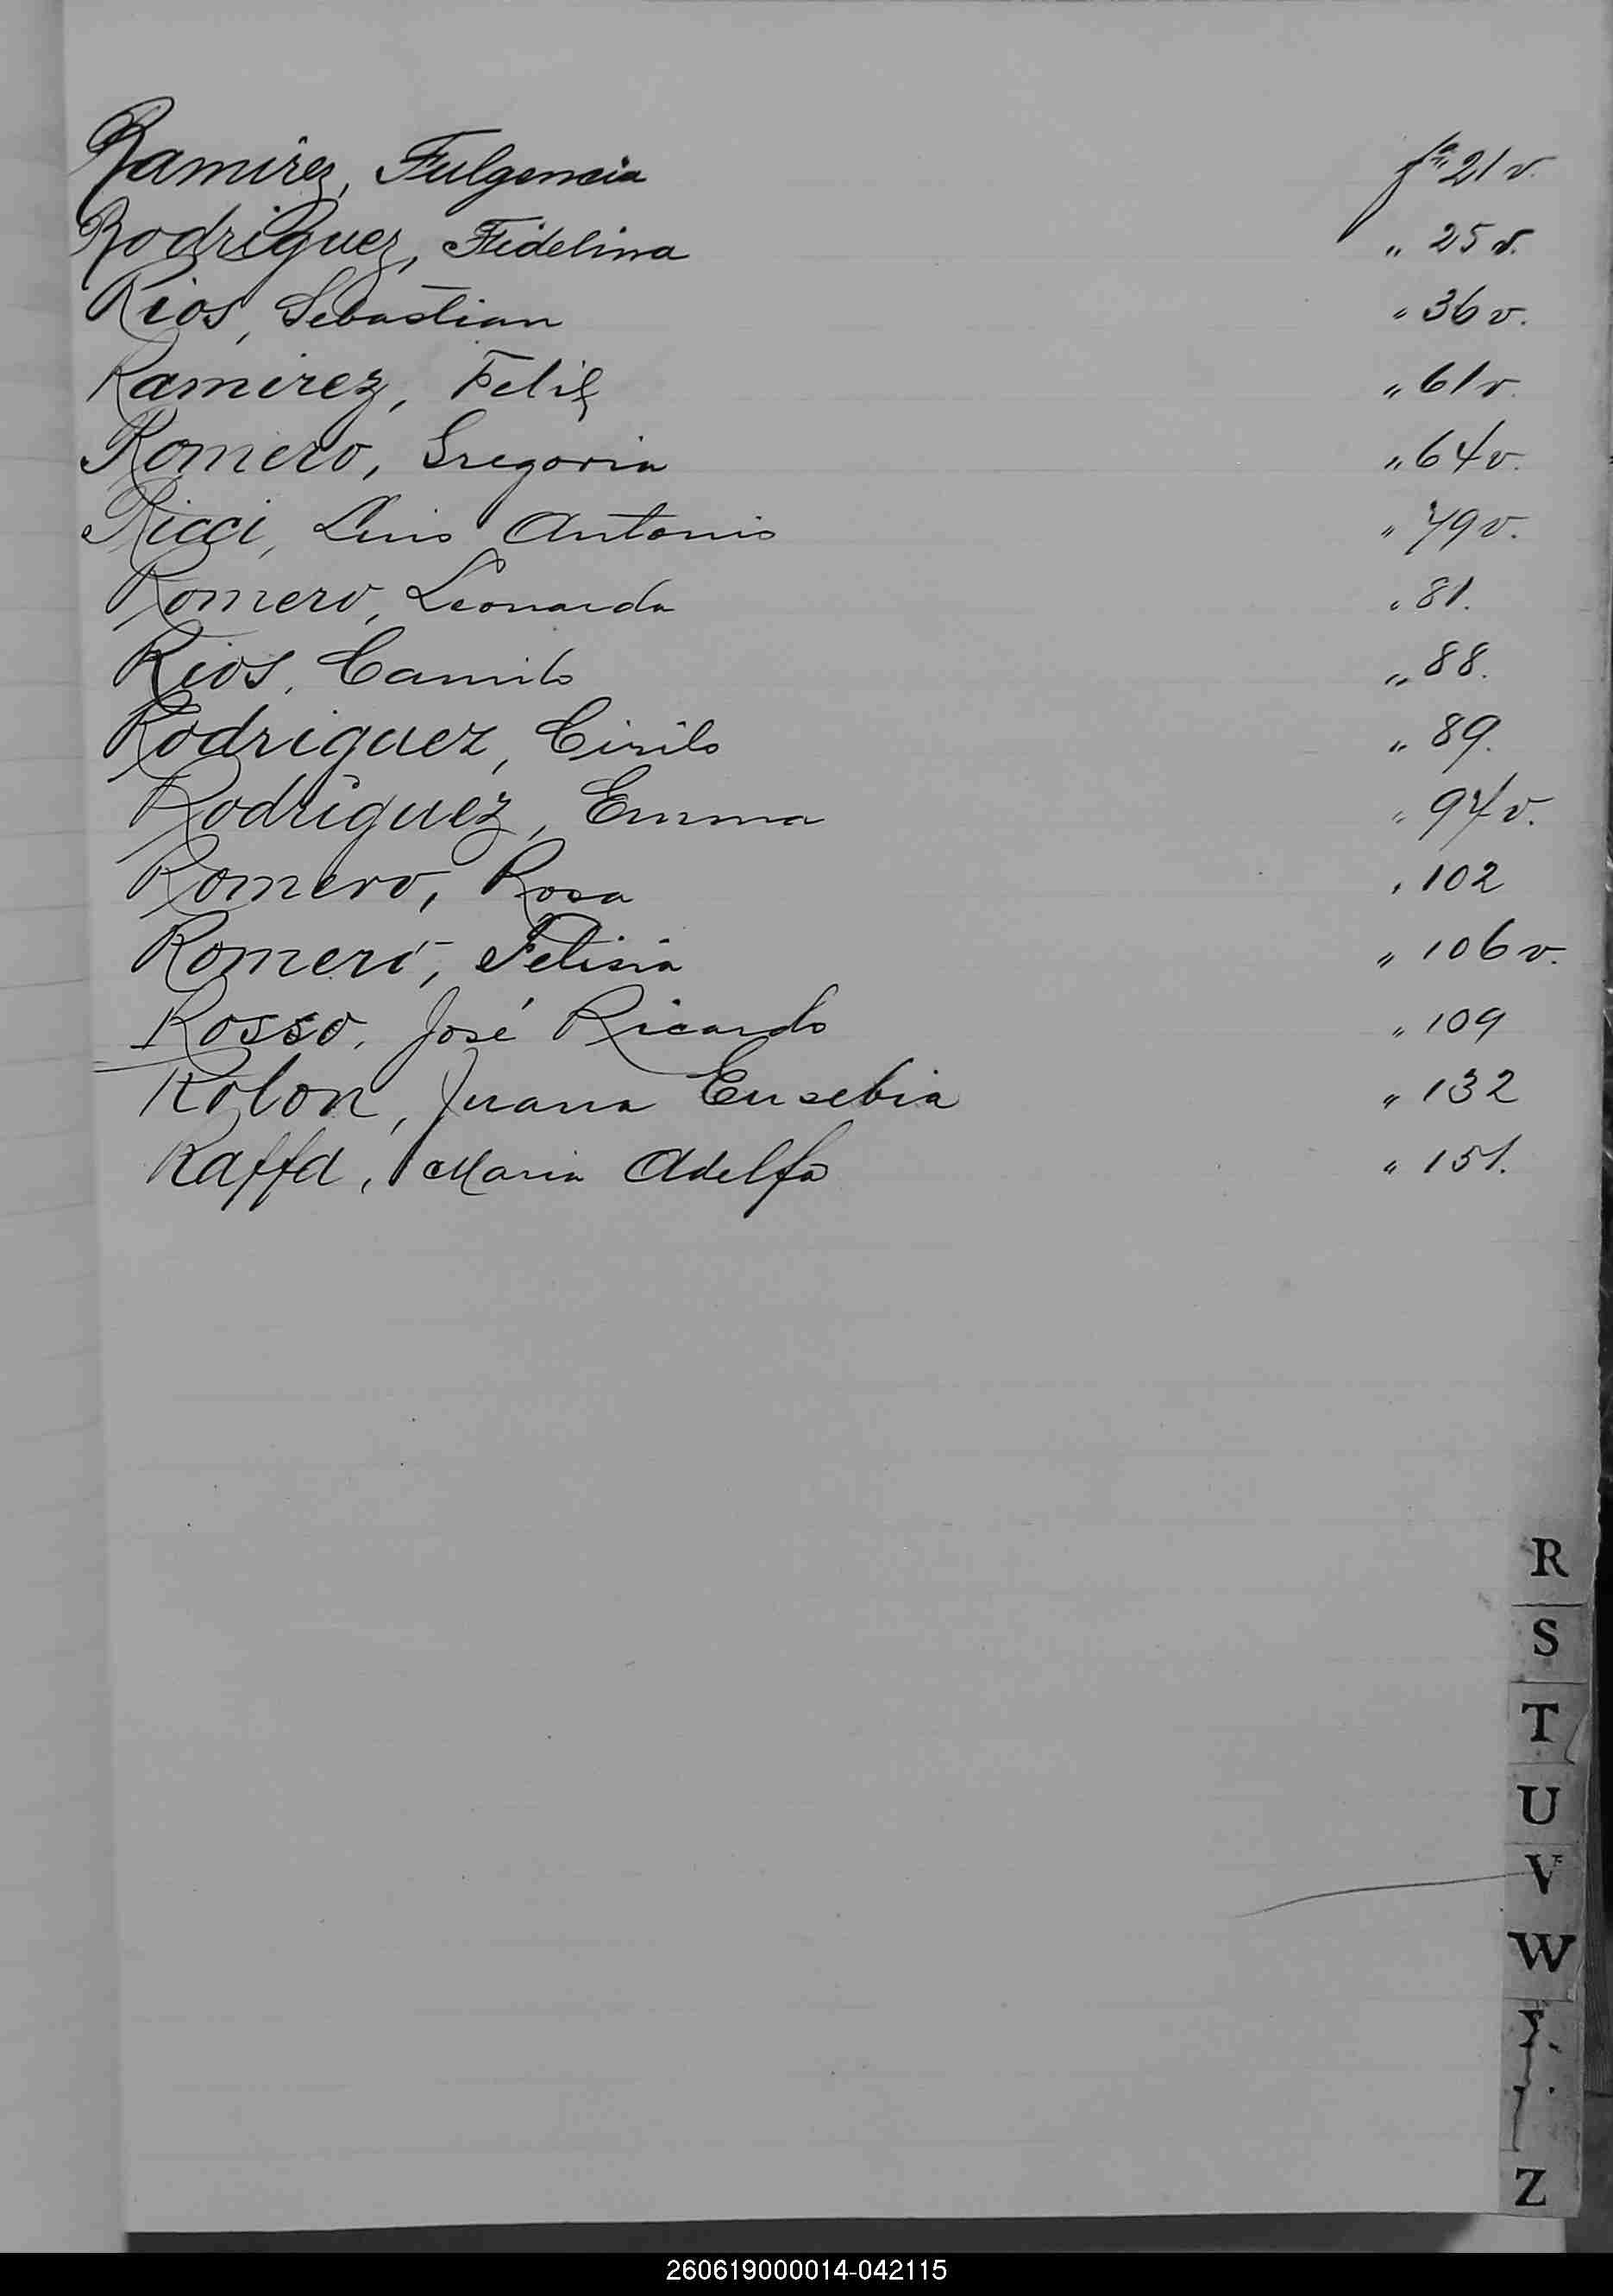 Ramirez, Fulgencia fª 21 v.
Rodriguez, Fidelina „ 25 v.
Rios, Sebastian „ 36 v.
Ramirez, Felix „ 61 v.
Romero, Gregoria „ 64 v.
Ricci, Luis Antonio „ 79 v.
Romero, Leonarda „ 81.
Rios, Camilo „ 88.
Rodriguez, Cirilo „ 89.
Rodriguez, Emma „ 94 v.
Romero, Rosa „ 102
Romero, Felisia „ 106 v.
Rosso, José Ricardo „ 109
Rolon, Juana Eusebia „ 132
Raffa, Maria Adelfa „ 151.
R
S
T
U
V
W
Z
260619000014-042115